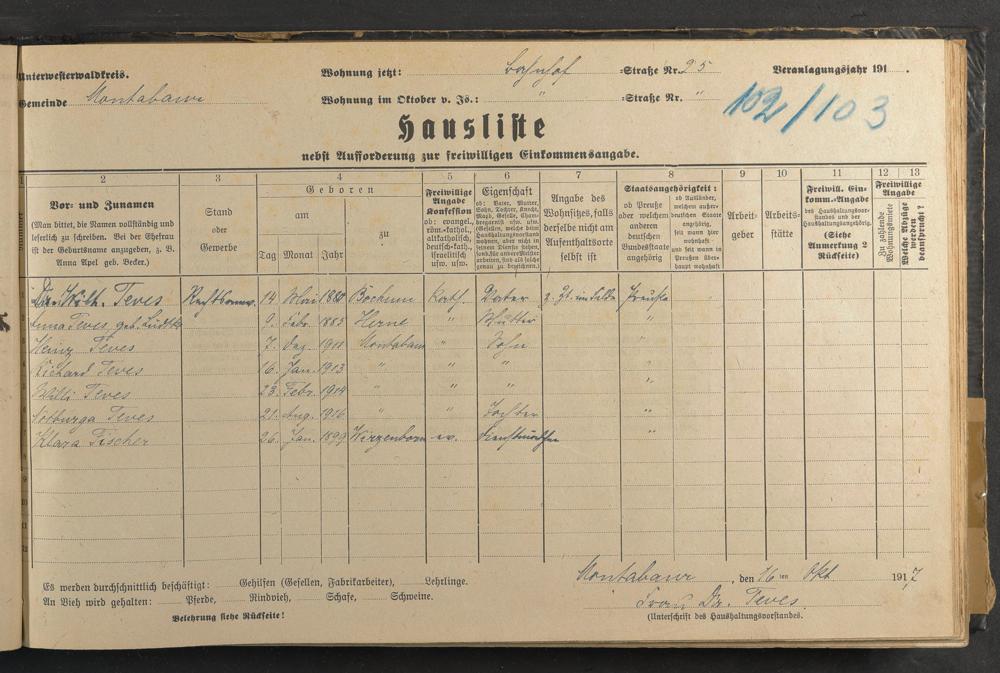 Unterwesterwaldkreis. Wohnung jetzt: Bahnhof =Straße Nr. 25 Veranlagungsjahr 191 .
Gemeinde Montabaur Wohnung im Oktober v. Js.: " =Straße Nr. " 102/103
Hausliste
nebst Aufforderung zur freiwilligen Einkommensangabe.
1 2 3 4 5 6 7 8 9 10 11 12 13
Vor- und Zunamen
(Man bittet, die Namen vollständig und
leserlich zu schreiben. Bei der Ehefrau
ist der Geburtsname anzugeben, z. B.
Anna Apel geb. Becker.)
Stand
oder
Gewerbe
Geboren
am
zu
Tag Monat Jahr
Freiwillige
Angabe
Konfession
ob: evangel.,
röm.-kathol.,
altkatholisch,
deutsch-kath.,
israelitisch
usw. usw.
Eigenschaft
ob: Vater, Mutter,
Sohn, Tochter, Knecht,
Magd, Geselle,
Angabe des
Wohnsitzes, falls
derselbe nicht am
Aufenthaltsorte
selbst ist
Staatsangehörigkeit:
ob Preuße
oder welchem
anderen
deutschen
Bundesstaate
angehörig
ob Ausländer,
welchem außer-
deutschen Staate
angehörig,
seit wann hier
wohnhaft
und seit wann in
Preußen über-
haupt wohnhaft
Arbeit-
geber
Arbeits-
stätte
Freiwill. Ein-
komm.-Angabe
des Haushaltungsvor-
standes und der
Haushaltungsangehörig.
(Siehe
Anmerkung 2
Rückseite)
Freiwillige
Angabe
Zu zahlende
Wohnungsmiete
Welche Abzüge
werden
beansprucht?
Dr. Wilh. Teves Rechtsanw. 14. Mai 1880 Bochum kath. Vater z. Zt. im Felde Preuße
Anna Teves geb. 9. Febr. 1885 Herne " Mutter "
Heinz Teves 7. Dez. 1911 Montabaur " Sohn "
Richard Teves 16. Jan. 1913 " " " "
Willi Teves 23. Febr. 1914 " " " "
Notburga Teves 21. Aug. 1916 " " Tochter "
Klara Fischer 26. Jan. 1899 Wirzenborn ev. Dienstmädchen "
Es werden durchschnittlich beschäftigt: Gehilfen (Gesellen, Fabrikarbeiter), Lehrlinge.
An Vieh wird gehalten: Pferde, Rindvieh, Schafe, Schweine.
Belehrung siehe Rückseite!
Montabaur , den 16 ten Okt 1917
Frau Dr. Teves.
(Unterschrift des Haushaltungsvorstandes.)